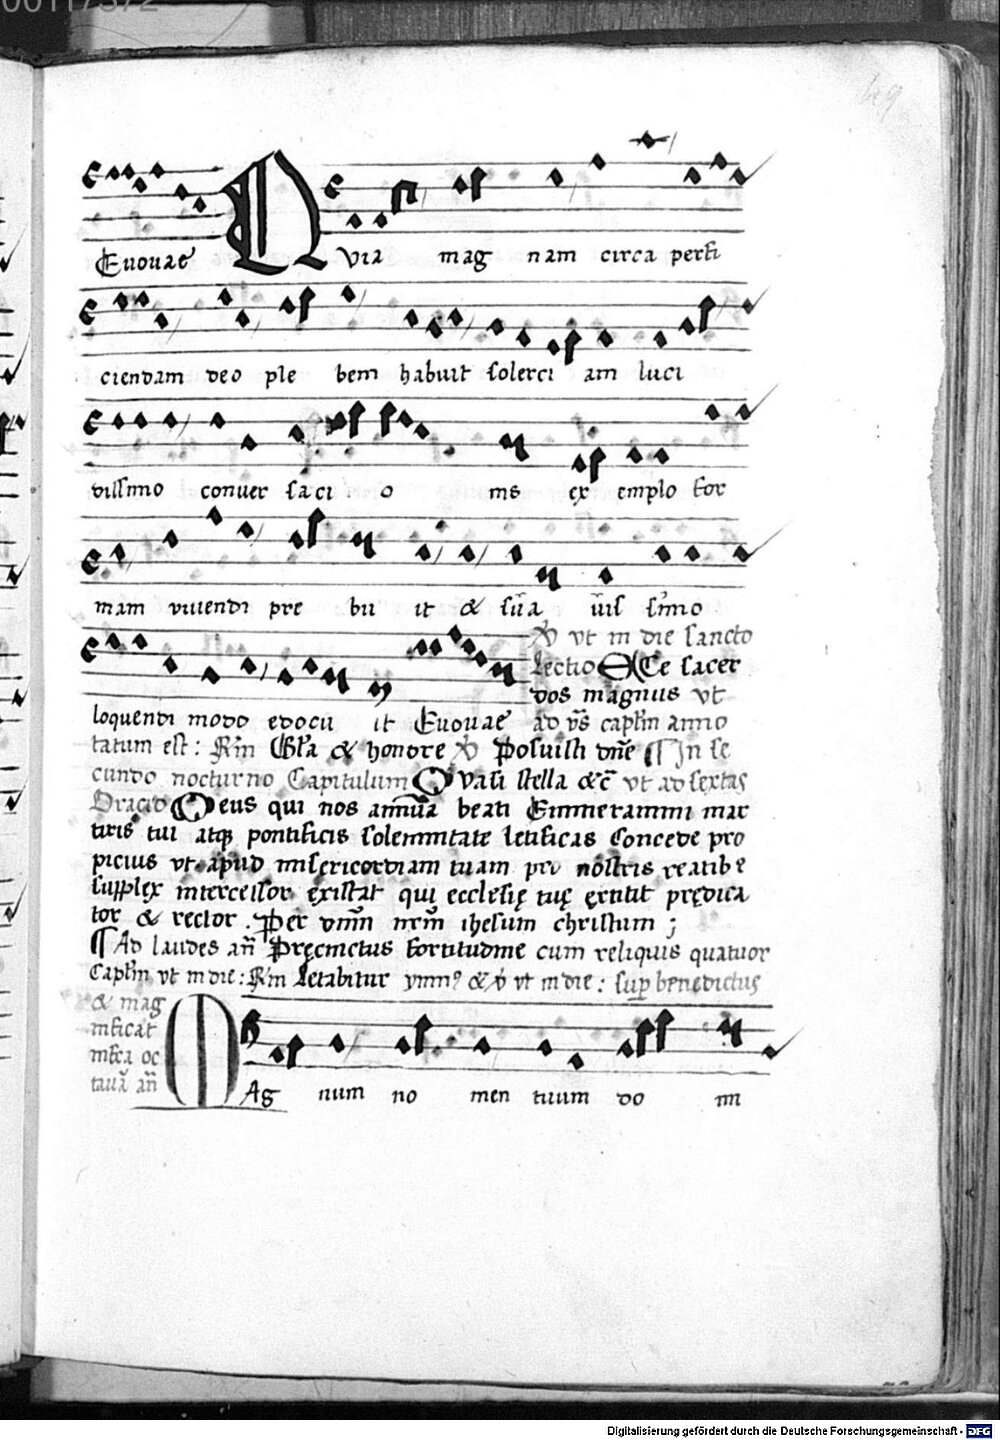 00117372
49
Euouae Quia mag nam circa perfi
ciendam deo ple bem habuit solerci am luci
dissimo conuer saci o nis ex emplo for
mam viuendi pre bu it & sua uis simo
loquendi modo edocu it Euouae
vt in die sancto
Lectio Ecce sacer
dos magnus vt
ad vs̄ capłm anno
tatum est: Rm̄ Glr̄a & honore Posuisti dn̄e ¶ In se
cundo nocturno Capitulum Quasi stella &c̄ vt ad sextas
Oracio Deus qui nos annua beati Emmerammi mar
tiris tui atq; pontificis solemnitate letificas concede pro
picius vt apud misericordiam tuam pro nostris reatib9
supplex intercessor existat qui ecclesię tuę extitit prędica
tor & rector . Per dnm̄ nrm̄ ihesum christum ;
¶ Ad laudes an̄ Pręcinctus fortitudine cum reliquis quatuor
Capłm vt in die: Rm̄ Letabitur ymn9 & v̄ vt in die: sup benedictus
& mag
nificat
infra oc
tauā an̄
MAg num no men tuum do mi
Digitalisierung gefördert durch die Deutsche Forschungsgemeinschaft - DFG